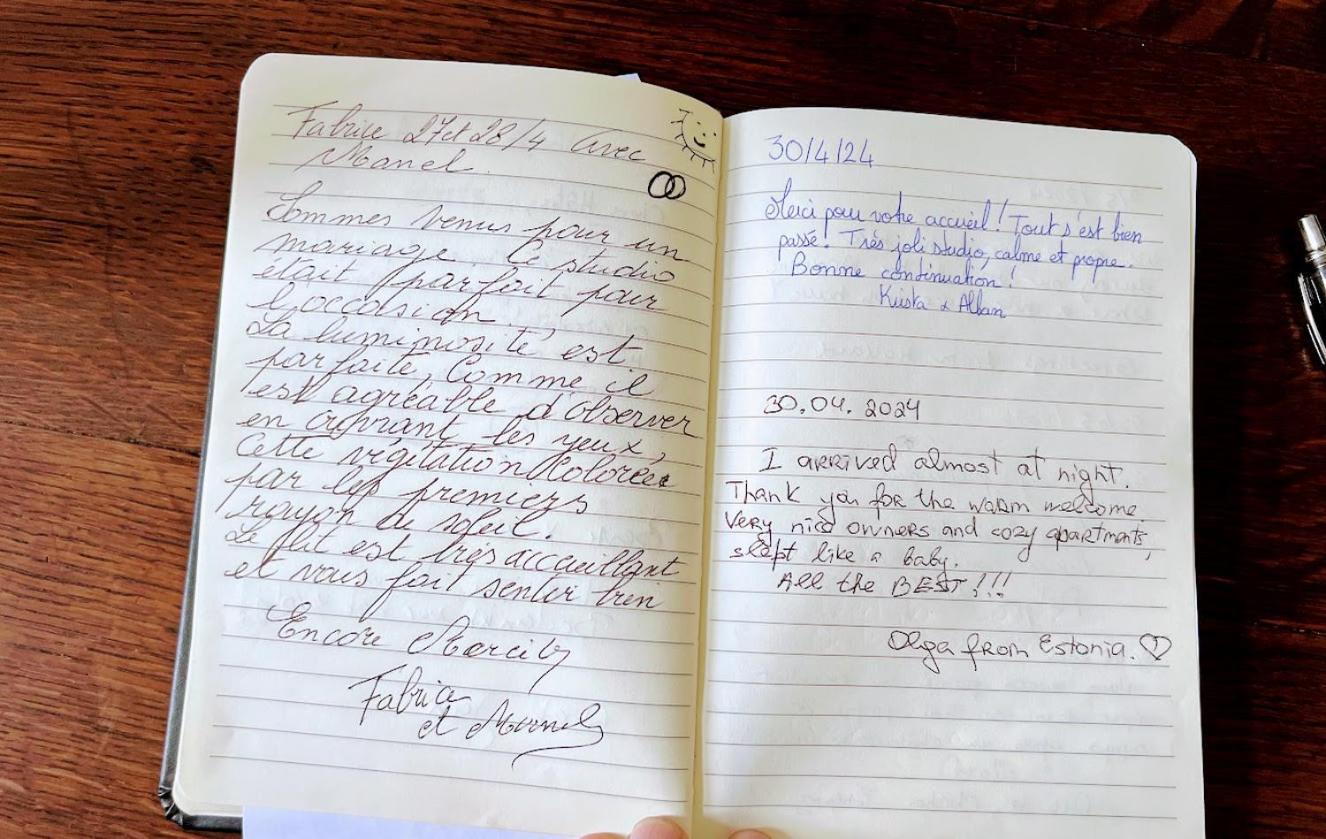 Fabrice 27 et 28/4 avec
Manel.
Sommes venus pour un
mariage. Ce studio
était parfait pour
l'occasion.
La luminosité est
parfaite, Comme il
est agréable d'observer
en ouvrant les yeux,
Cette végétation Colorée
par les premiers
rayon du soleil.
Le lit est très accueillant
et vous fait sentir bien
Encore Merci
Fabrice
et Manel
30/4/24
Merci pour votre accueil! Tout s'est bien
passé! Très joli studio, calme et propre.
Bonne continuation!
& Alban
30.04. 2024
I arrived almost at night.
Thank you for the warm welcome
Very nice owners and cozy apartments,
slept like a baby.
All the BEST!!!
Olga from Estonia.